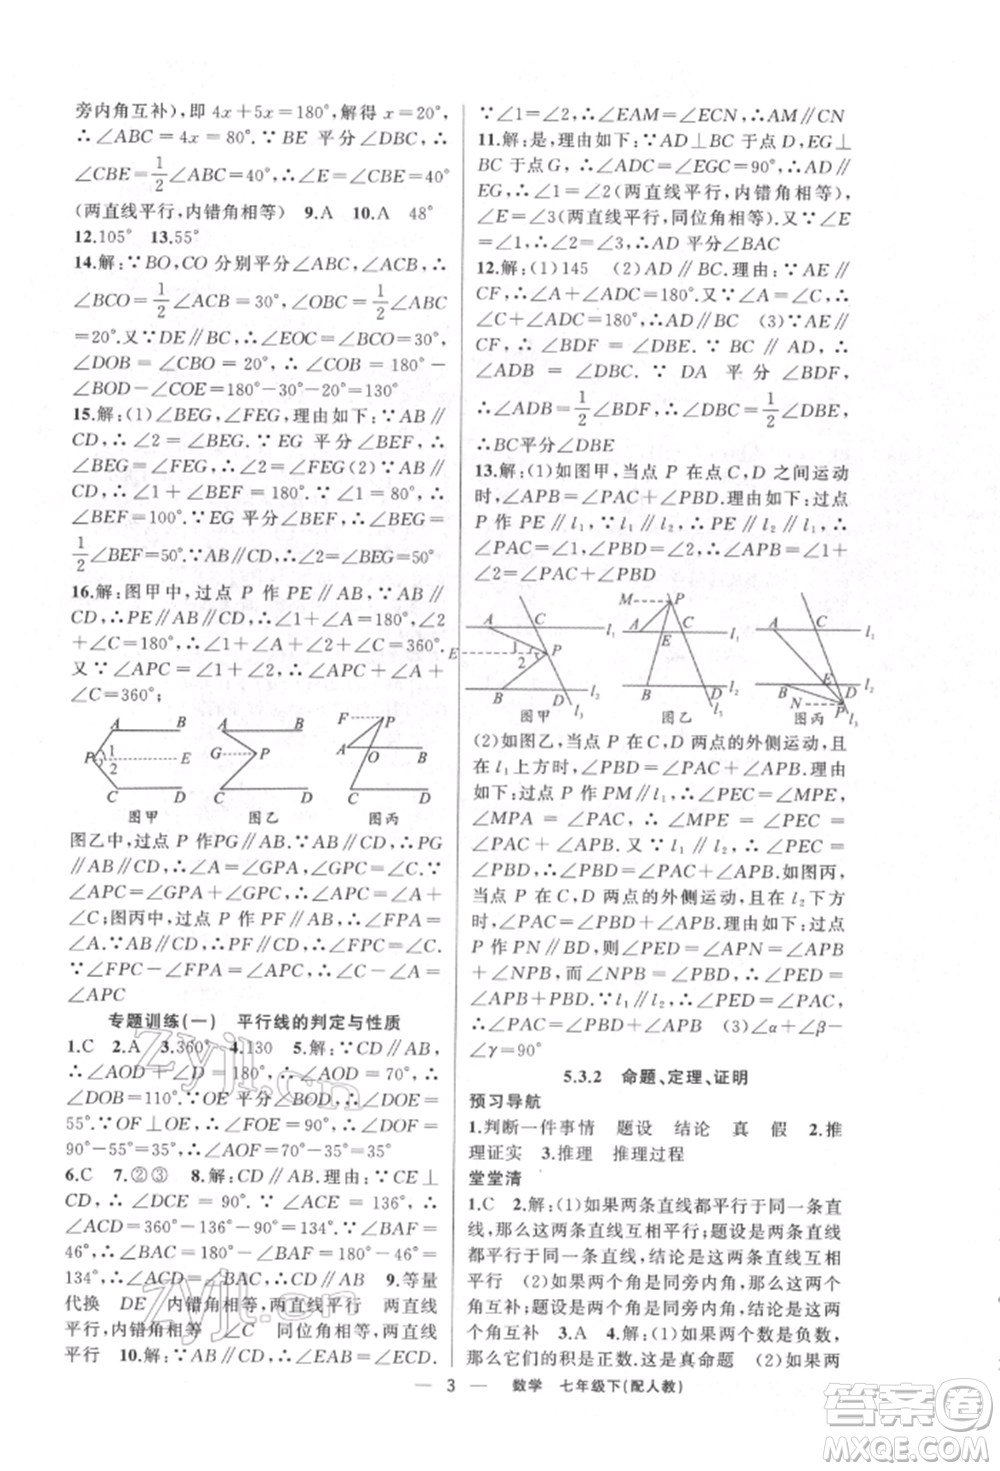 旁内角互补),即 4x+5x=180°,解得 x=20°,
∴∠ABC=4x=80°.∵BE 平分∠DBC,∴
∠CBE=1/2∠ABC=40°,∴∠E=∠CBE=40°
(两直线平行,内错角相等) 9.A 10.A 48°
12.105° 13.55°
14.解:∵BO,CO 分别平分∠ABC,∠ACB,∴
∠BCO=1/2∠ACB=30°,∠OBC=1/2∠ABC
=20°.又∵DE∥BC,∴∠EOC=∠BCO=30°,
∠DOB=∠CBO=20°,∴∠COB=180°-
∠BOD-∠COE=180°-30°-20°=130°
15.解:(1)∠BEG,∠FEG,理由如下:∵AB∥
CD,∴∠2=∠BEG.∵EG 平分∠BEF,∴
∠BEG=∠FEG,∴∠2=∠FEG(2)∵∠BEG
=∠2,∴∠1+∠BEF=180°.∵∠1=80°,∴
∠BEF=100°.∵EG平分∠BEF,∴∠BEG=
1/2∠BEF=50°.∵AB∥CD,∴∠2=∠BEG=50°.
16.解:图甲中,过点 P 作 PE∥AB,∵AB∥
CD,∴PE∥AB∥CD,∴∠1+∠A=180°,∠2
+∠C=180°,∴∠1+∠A+∠2+∠C=360°.
又∵∠APC=∠1+∠2,∴∠APC+∠A+
∠C=360°;
A B
P 1 2 E
C D
图甲
A B
G P
C D
图乙
F P
A B
O
C D
图丙
图乙中,过点 P 作PG∥AB.∵AB∥CD,∴
PG∥AB∥CD,∴∠A=∠GPA,∠C=∠GPC,
∴∠APC=∠GPA+∠GPC,∴∠APC=∠A+
∠C;图丙中,过点 P 作 PF∥AB,∴∠FPA=
∠A.∵AB∥CD,∴PF∥CD,∴∠FPC=∠C.
∵∠FPC-∠FPA=∠APC,∴∠C-∠A=
∠APC
专题训练(一) 平行线的判定与性质
1.C 2.A 3.360° 4.130 5.解:∵CD∥AB,
∴∠AOD+∠D=180°,∴∠AOD=70°,∴
∠DOB=110°.∵OE平分∠BOD,∴∠DOE=
55°.∵OF⊥OE,∴∠FOE=90°,∴∠DOF=
90°-55°=35°,∴∠AOF=70°-35°=35°
6.C 7.②③ 8.解:CD∥AB.理由:∵CE⊥
CD,∴∠DCE=90°.∵∠ACE=136°,∴
∠ACD=360°-136°-90°=134°.∵∠BAF=
46°,∴∠BAC=180°-∠BAF=180°-46°=
134°,∴∠ACD=∠BAC,∴CD∥AB 9.等量
代换 DE 内错角相等,两直线平行 两直线
平行,内错角相等 ∠C 同位角相等,两直线
平行 10.解:∵AB∥CD,∴∠EAB=∠ECD.
∵∠1=∠2,∴∠EAM=∠ECN,∴AM∥CN
11.解:是,理由如下:∵AD⊥BC 于点 D,EG⊥
BC 于点G,∴∠ADC=∠EGC=90°,∴AD∥
EG,∴∠1=∠2(两直线平行,内错角相等),
∠E=∠3(两直线平行,同位角相等).又∵∠E
=∠1,∴∠2=∠3,∴AD 平分∠BAC
12.解:(1)145 (2)AD∥BC.理由:∵AE∥
CF,∴∠A+∠ADC=180°.又∵∠A=∠C,∴
∠C+∠ADC=180°,∴AD∥BC (3)∵AE∥
CF,∴∠BDF=∠DBE.∵AD∥BC,∴
∠ADB=∠CBD.∵DA 平分∠BDF,
∴∠ADB=1/2∠BDF,∴∠CBD=1/2∠DBE,
∴BC平分∠DBE
13.解:(1)如图甲,当点 P 在点 C,D 之间运动
时,∠APB=∠PAC+∠PBD.理由如下:过点
P 作 PE∥l₁,∵l₁∥l₂,∴PE∥l₂∥l₁,
∴∠PAC=∠1,∠PBD=∠2,∴∠APB=∠1
+∠2=∠PAC+∠PBD
A C l₁
E 1 2 P
B D l₂
l₃
图甲
M P
A E C l₁
B D l₂
l₃
图乙
A C l₁
B E D l₂
N P l₃
图丙
(2)如图乙,当点 P 在 C,D 两点的外侧运动,且
在 l₁上方时,∠PBD=∠PAC+∠APB.理由如
下:过点 P 作 PM∥l₁,∴∠PEC=∠MPE,
∠MPA=∠PAC.∵∠MPE=∠MPA+
∠APB,∴∠PEC=∠PAC+∠APB.又∵l₁∥
l₂,∴∠PEC=∠PBD,∴∠PBD=∠PAC+
∠APB,∴∠PBD=∠PAC+∠APB.如图丙,
当点 P 在 C,D 两点的外侧运动,且在 l₂下方
时,∠PAC=∠PBD+∠APB.理由如下:过点
P 作PN∥BD,则∠PED=∠APN,∠PBD=
∠NPB,∴∠PED=∠APN=∠APB+∠NPB
=∠APB+∠PBD.∵l₁∥l₂,∴∠PED=
∠PAC,∴∠PAC=∠PBD+∠APB (3)∠α+∠β-
∠γ=90°
5.3.2 命题、定理、证明
预习导航
1.判断一件事情 题设 结论 真 假 2.推
理证实 3.推理 推理过程
堂堂清
1.C 2.解:(1)如果两条直线都平行于同一条直
线,那么这两条直线互相平行;题设是两条直线
都平行于同一条直线,结论是这两条直线互相
平行 (2)如果两个角是同旁内角,那么这两个
角互补;题设是两个角是同旁内角,结论是这两
个角互补 3.A 4.解:(1)如果两个数是负数,
那么它们的积是正数.是真命题 (2)如果两
— 3 — 数学 七年级下(配人教)
zyjl.cn
zyjl.cn
答案圈
MXQE.COM